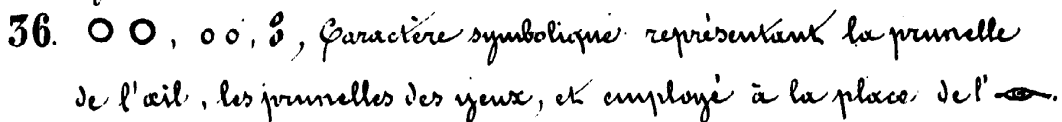 36. O O, o o, 8, Caractère symbolique représentant la prunelle
de l'œil, les prunelles des yeux, et employé à la place de l'